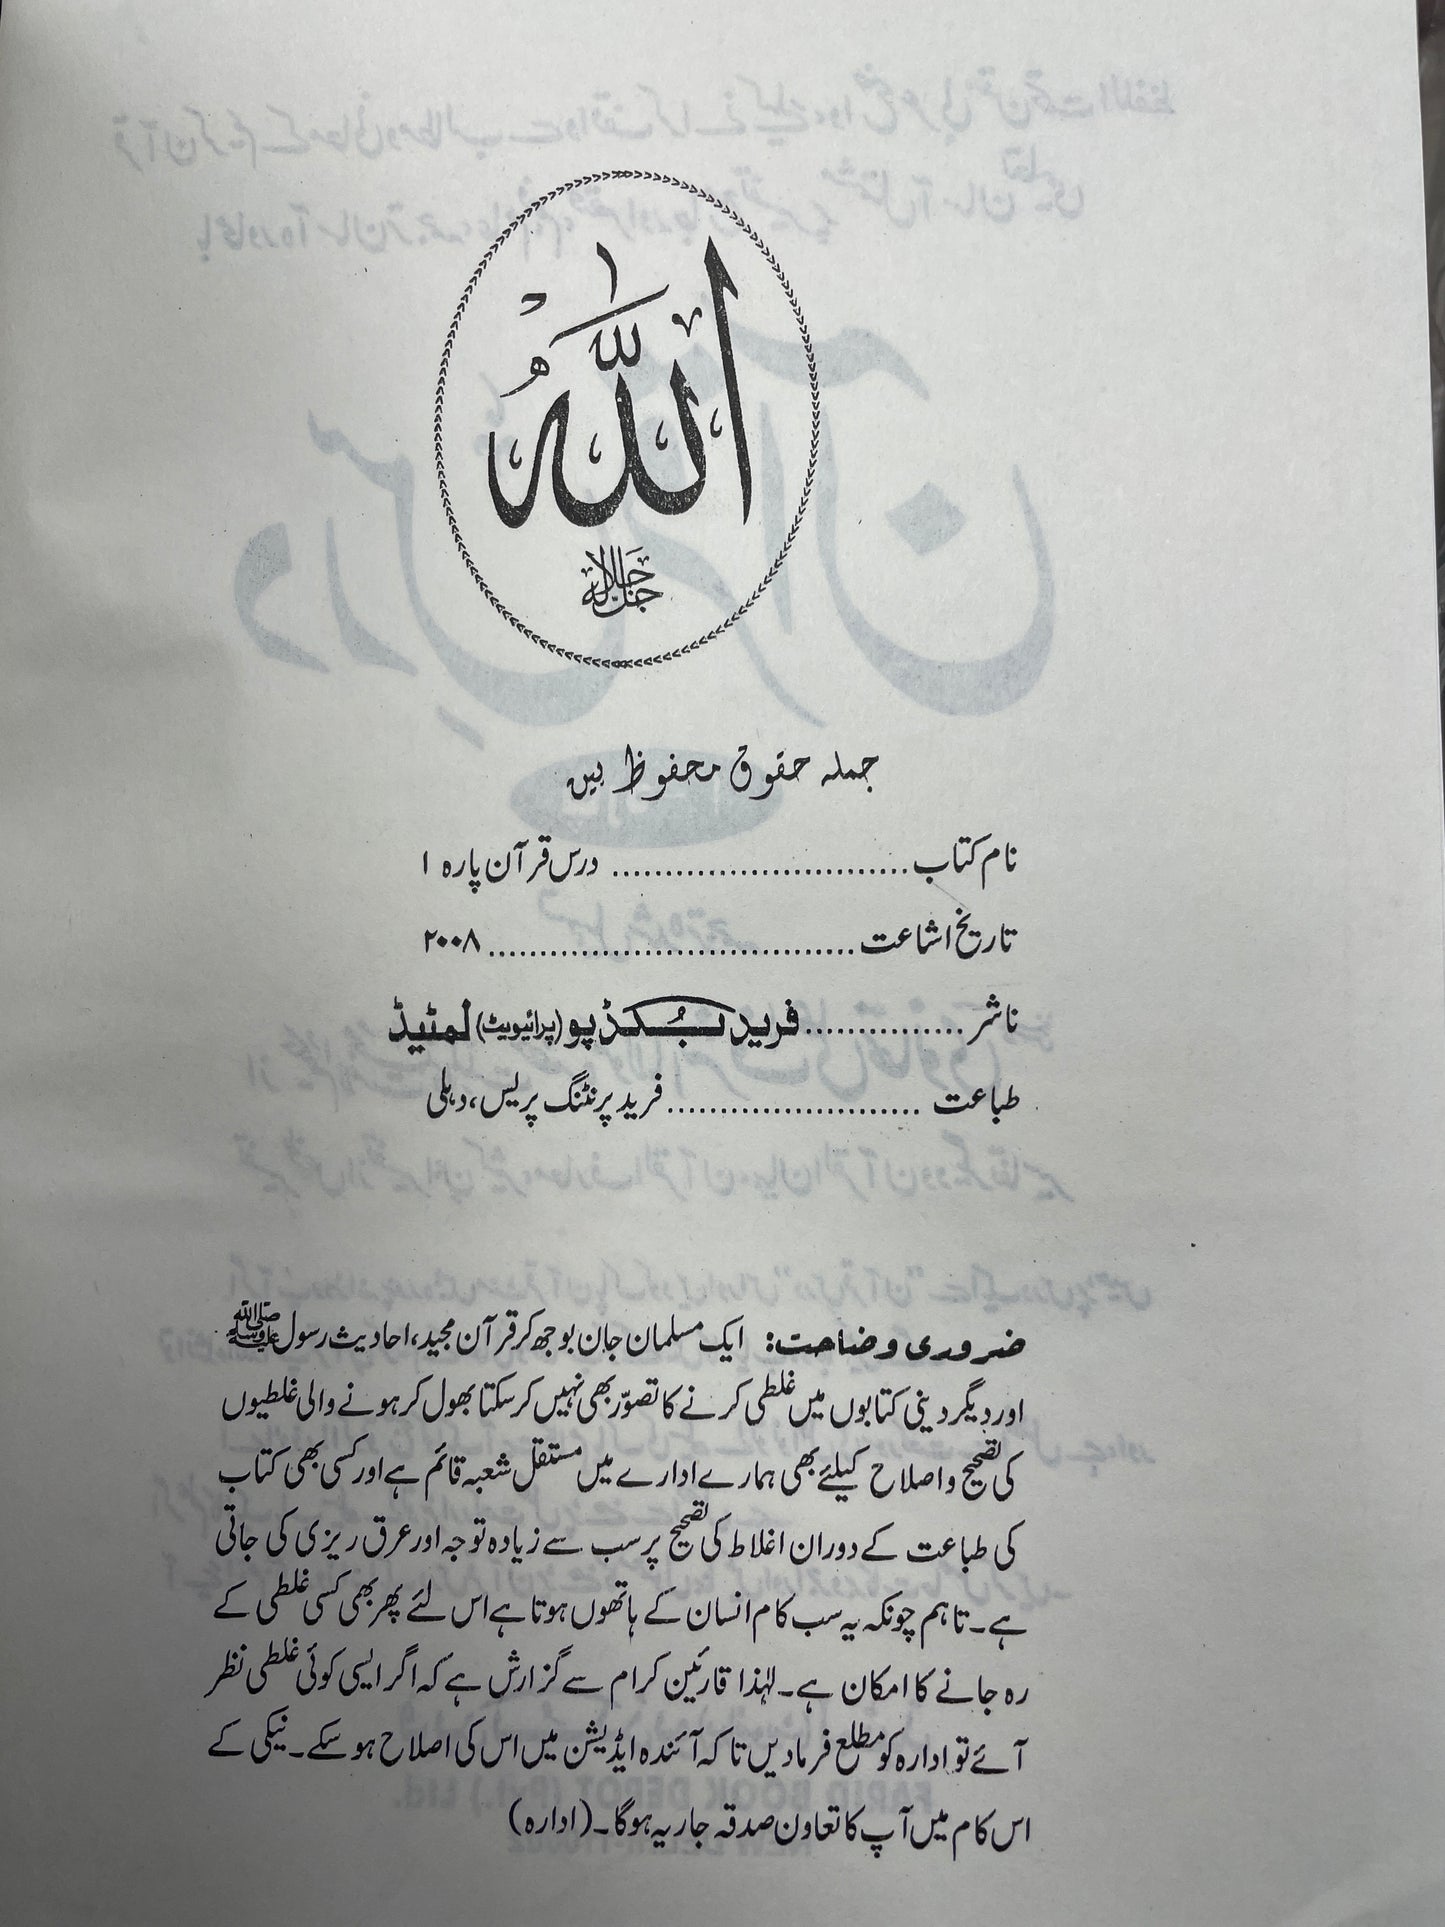 اللّٰہُ
جل جلالہ
جملہ حقوق محفوظ ہیں
نام کتاب............................ درس قرآن پارہ ۱
تاریخ اشاعت...................................۲۰۰۸
ناشر ...............فرید بکڈپو (پرائیویٹ) لمٹیڈ
طباعت ........................فرید پرنٹنگ پریس، دہلی
ضروری وضاحت: ایک مسلمان جان بوجھ کر قرآن مجید، احادیث رسول ﷺ
اور دیگر دینی کتابوں میں غلطی کرنے کا تصوّر بھی نہیں کر سکتا بھول کر ہونے والی غلطیوں
کی تصحیح و اصلاح کیلئے بھی ہمارے ادارے میں مستقل شعبہ قائم ہے اور کسی بھی کتاب
کی طباعت کے دوران اغلاط کی تصحیح پر سب سے زیادہ توجہ اور عرق ریزی کی جاتی
ہے۔ تاہم چونکہ یہ سب کام انسان کے ہاتھوں ہوتا ہے اس لئے پھر بھی کسی غلطی کے
رہ جانے کا امکان ہے۔ لہٰذا قارئین کرام سے گزارش ہے کہ اگر ایسی کوئی غلطی نظر
آئے تو ادارہ کو مطلع فرمادیں تاکہ آئندہ ایڈیشن میں اس کی اصلاح ہو سکے۔ نیکی کے
اس کام میں آپ کا تعاون صدقہ جاریہ ہوگا۔ (ادارہ)